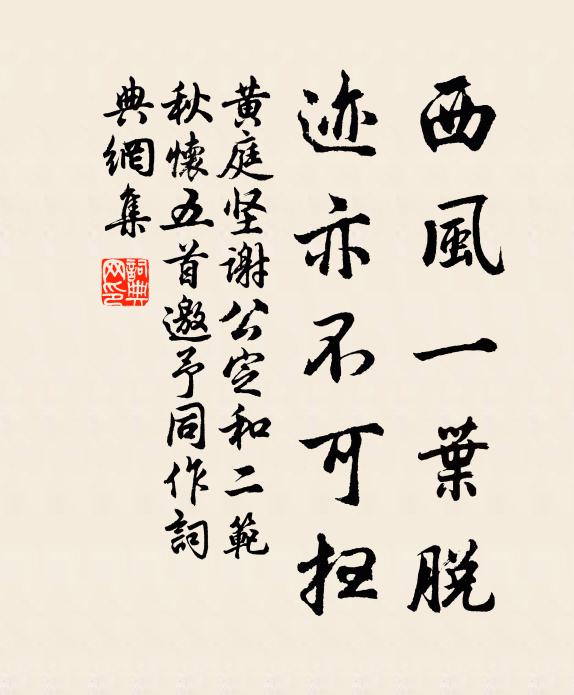 西風一葉脱
迹亦不可扫
黄庭坚謝公定和二範
秋懷五首邀予同作詞
典網集
詞典網印